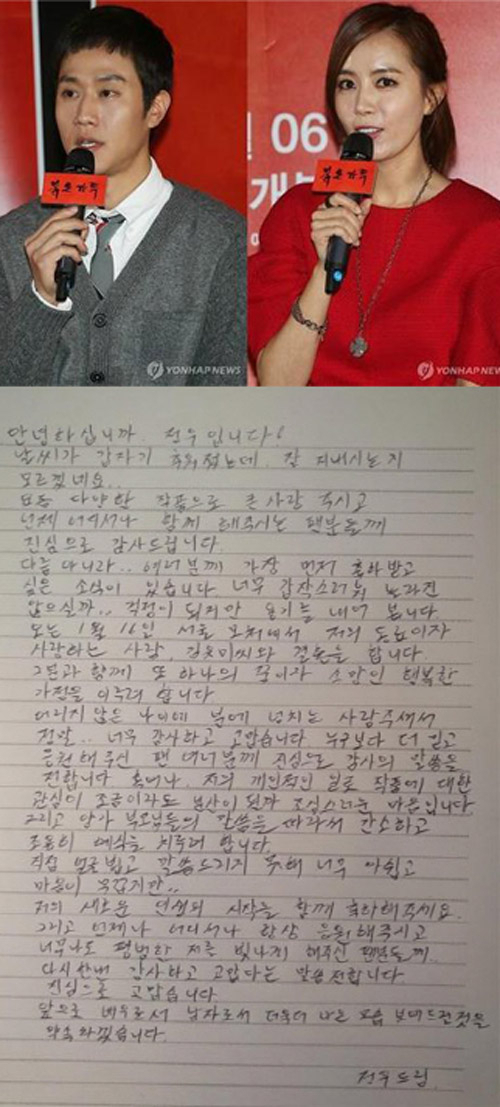 06
붉은 가족
YONHAP NEWS
붉은 가족
YONHAP NEWS
안녕하십니까. 정우입니다!
날씨가 갑자기 추워졌는데. 잘 지내시는지
모르겠네요..
요즘 다양한 작품으로 큰 사랑 주시고
언제 어디서나 함께 해주시는 팬분들께
진심으로 감사드립니다.
다름 아니라.. 여러분께 가장 먼저 축하받고
싶은 소식이 있습니다 너무 갑작스러워 놀라진
않으실까.. 걱정이 되지만 용기를 내어 봅니다
오는 1월 16일 서울 모처에서 저의 동료이자
사랑하는 사람, 김유미씨와 결혼을 합니다.
그분과 함께 또 하나의 꿈이자 소망인 행복한
가정을 이루려 합니다
어리지 않은 나이에 분에 넘치는 사랑주셔서
정말.. 너무 감사하고 고맙습니다 누구보다 더 믿고
응원해 주신 팬 여러분께 진심으로 감사의 말씀을
전합니다 혹여나. 저의 개인적인 일로 작품에 대한
관심이 조금이라도 분산이 될까 조심스러운 마음입니다
그리고 양가 부모님들의 말씀을 따라서 간소하고
조용히 예식을 치루려 합니다.
직접 얼굴뵙고 말씀드리지 못해 너무 아쉽고
마음이 무겁지만..
저의 새로운 인생의 시작을 함께 축하해주세요.
그리고 언제나 어디서나 항상 응원해주시고
너무나도 평범한 저를 빛나게 해주신 팬분들께..
다시한번 감사하고 고맙다는 말씀 전합니다.
진심으로 고맙습니다
앞으로 배우로서 남자로서 더욱더 나은 모습 보여드릴것을
약속하겠습니다.
정우드림